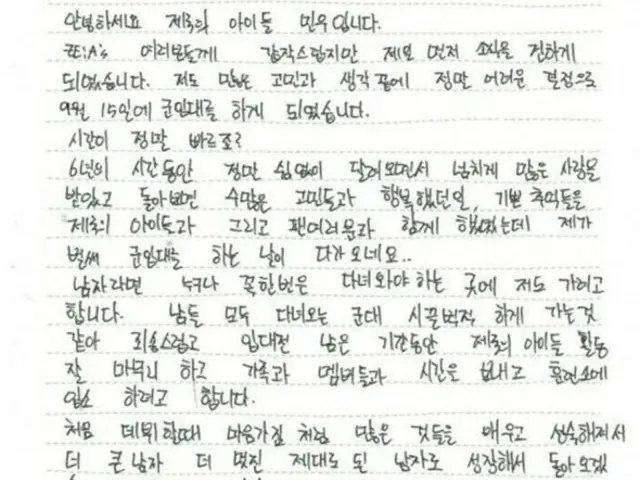 안녕하세요 제국의 아이돌 민우입니다.
ZE:A's 여러분들께 갑작스럽지만 제일 먼저 소식을 전하게
되었습니다. 저도 많은 고민과 생각 끝에 정말 어려운 결정으로
9월 15일에 군입대를 하게 되었습니다.
시간이 정말 빠르죠?
6년의 시간동안 정말 쉼없이 달려오면서 넘치게 많은 사랑을
받았고 돌아보면 수많은 고민들과 행복했던일, 기쁜 추억들을
제국의 아이들과 그리고 팬여러분과 함께 했었는데 제가
벌써 군입대를 하는 날이 다가오네요..
남자라면 누구나 꼭한번은 다녀와야 하는 곳에 저도 가려고
합니다. 남들 모두 다녀오는 군대 시끌벅적 하게 가는것
같아 죄송스럽고 입대전 남은 기간동안 제국의 아이들 활동
잘 마무리 하고 가족과 멤버들과 시간을 보내고 훈련소에
입소 하려고 합니다.
처음 데뷔할때 마음가짐 처럼 많은 것들을 배우고 성숙해져서
더 큰남자 더 멋진 제대로 된 남자로 성장해서 돌아오겠